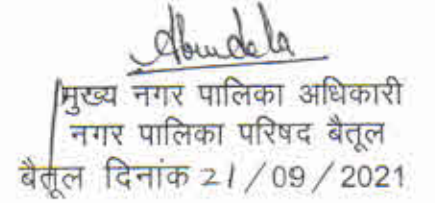 मुख्य नगर पालिका अधिकारी
नगर पालिका परिषद बैतूल
बैतूल दिनांक 21/09/2021